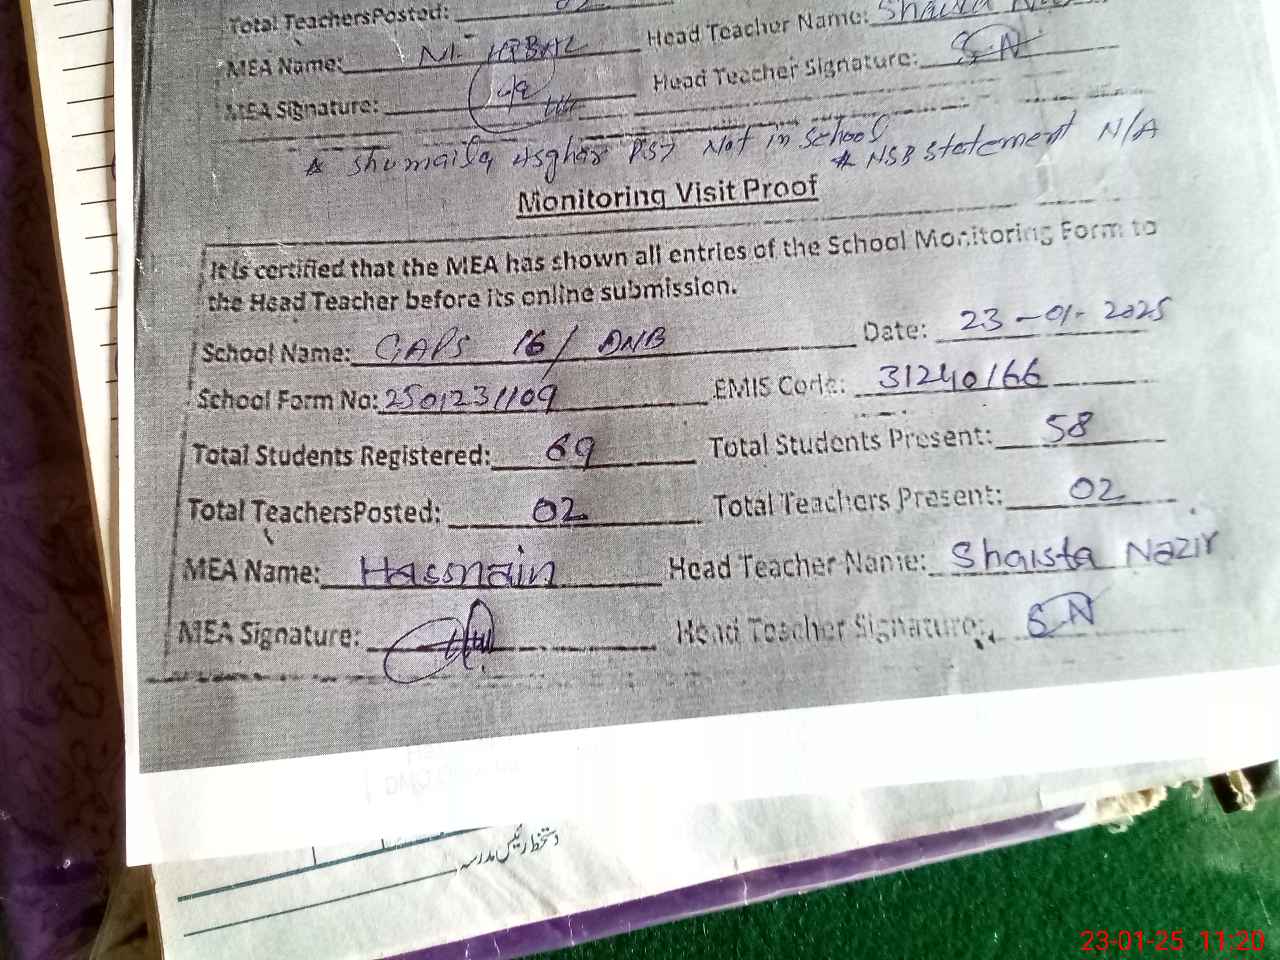 Total TeachersPosted: 02
Head Teacher Name: Shaista
MEA Name: M.
Head Teacher Signature: SN
MEA Signature:
* Shumaila Asghar PST Not in school
* NSB statement N/A
Monitoring Visit Proof
It is certified that the MEA has shown all entries of the School Monitoring Form to
the Head Teacher before its online submission.
School Name: GAPS 16/DNB Date: 23-01-2025
School Form No: 2501231109 EMIS Code: 31240166
Total Students Registered: 69 Total Students Present: 58
Total TeachersPosted: 02 Total Teachers Present: 02
MEA Name: Hasnain Head Teacher Name: Shaista Nazir
MEA Signature: Head Teacher Signature: SN
دستخط رئیس مدرسہ
23-01-25 11:20